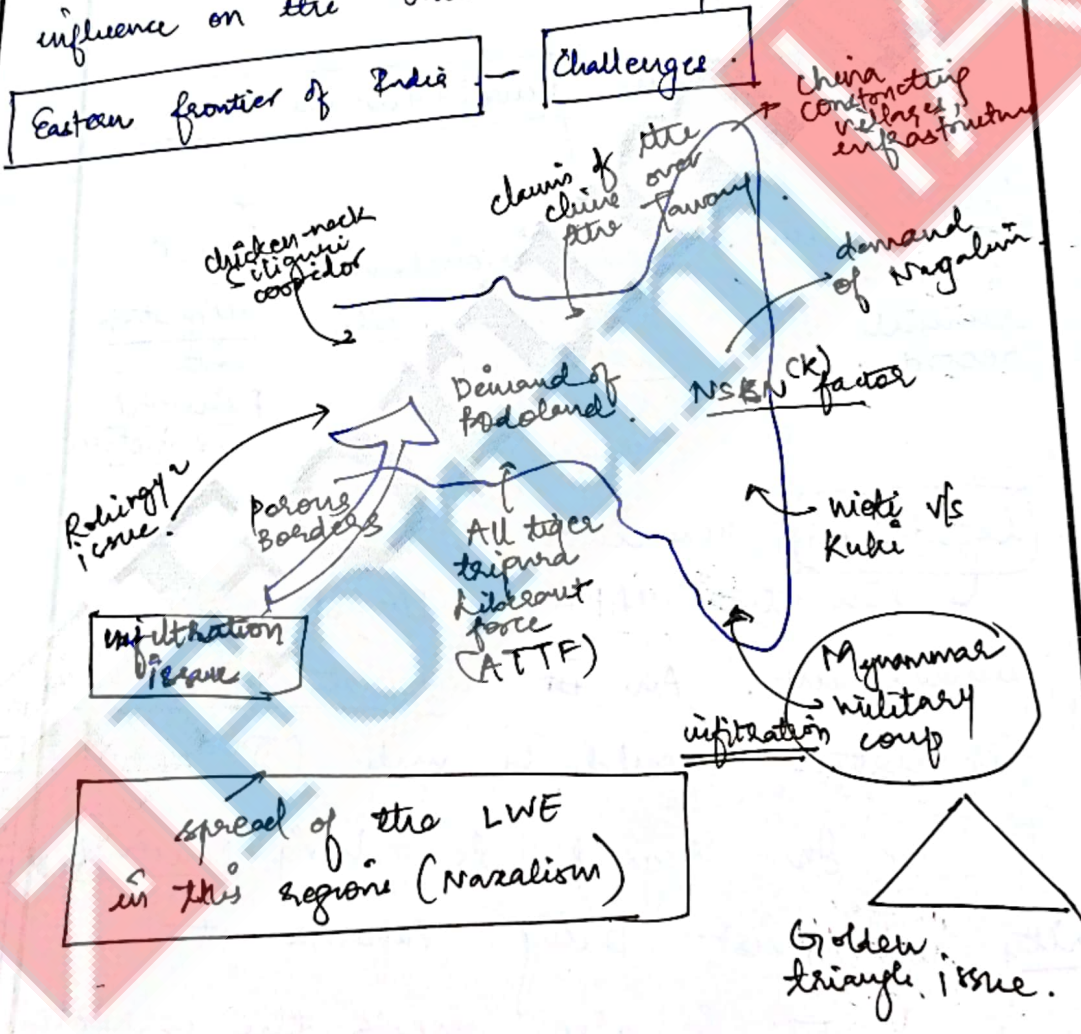 influence on the
Eastern frontier of India — Challenges.
China
constructing
villages,
infrastructure
claims of the
china over
the Tawang
chicken-neck
siliguri
corridor
demand
of Nagalim.
Demand of
Bodoland.
NSBN (K) factor
Rohingya
issue.
Porous
Borders
All tiger
tripura
force
(ATTF)
mieti v/s
Kuki
infiltration
issue
Mynammar
military
coup
infiltration
spread of the LWE
in this regions (Naxalism)
Golden
triangle issue.
Forum